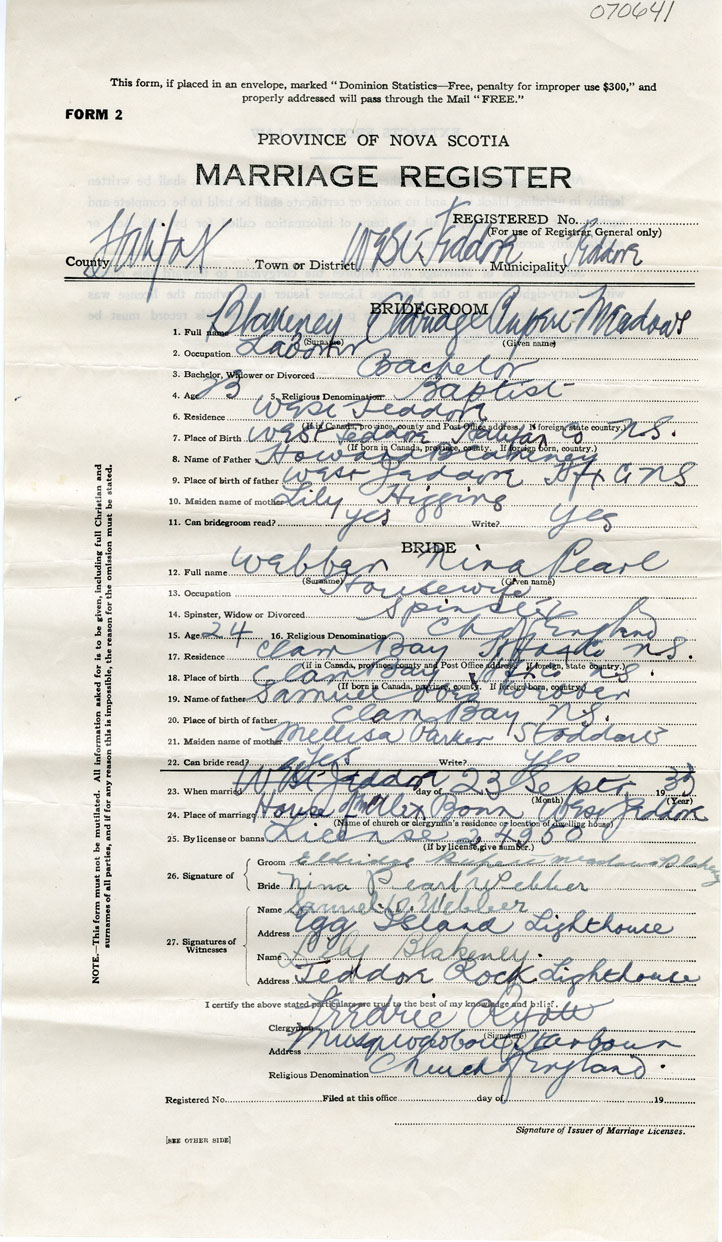 070641
This form, if placed in an envelope, marked "Dominion Statistics—Free, penalty for improper use $300," and
properly addressed will pass through the Mail "FREE."
FORM 2
PROVINCE OF NOVA SCOTIA
MARRIAGE REGISTER
REGISTERED No.
(For use of Registrar General only)
County Halifax Town or District West Jeddore Municipality Jeddore
BRIDEGROOM
1. Full name Blakeney Meadows
(Surname) (Given name)
2. Occupation Laborer
3. Bachelor, Widower or Divorced Bachelor
4. Age 23 5. Religious Denomination Baptist
6. Residence West Jeddore
(If in Canada, province, county and Post Office address. If foreign, state country.)
7. Place of Birth West Jeddore Halifax Co N.S.
(If born in Canada, province, county. If foreign born, country.)
8. Name of Father Howard
9. Place of birth of father West Jeddore Hfx Co NS
10. Maiden name of mother Lily Higgins
11. Can bridegroom read? yes Write? yes
BRIDE
12. Full name Webber Nina Pearl
(Surname) (Given name)
13. Occupation Housewife
14. Spinster, Widow or Divorced Spinster
15. Age 24 16. Religious Denomination Ch of England
17. Residence Clam Bay Hfx Co N.S.
(if in Canada, province, county and Post Office address. If foreign, state country.)
18. Place of birth Clam Bay Hfx Co N.S.
(If born in Canada, province, county. If foreign born, country.)
19. Name of father Samuel Webber
20. Place of birth of father Clam Bay N.S.
21. Maiden name of mother Mellisa Parker Stoddard
22. Can bride read? yes Write? yes
23. When married West Jeddore day of 23 Sept 19 33
(Month) (Year)
24. Place of marriage House of Bonn West Jeddore
(Name of church or clergyman's residence or location of dwelling house)
25. By license or banns License
(If by license, give number.)
26. Signature of
Groom Meadows Blakeney
Bride Nina Pearl Webber
27. Signatures of Witnesses
Name Samuel D. Webber
Address Egg Island Lighthouse
Name Blakeney
Address Jeddore Rock Lighthouse
I certify the above stated particulars are true to the best of my knowledge and belief.
Clergyman Fredric
(Signature)
Address Musquodoboit Harbour
Religious Denomination Church of England.
Registered No. Filed at this office day of 19
Signature of Issuer of Marriage Licenses.
[SEE OTHER SIDE]
NOTE.—This form must not be mutilated. All information asked for is to be given, including full Christian and
surnames of all parties, and if for any reason this is impossible, the reason for the omission must be stated.